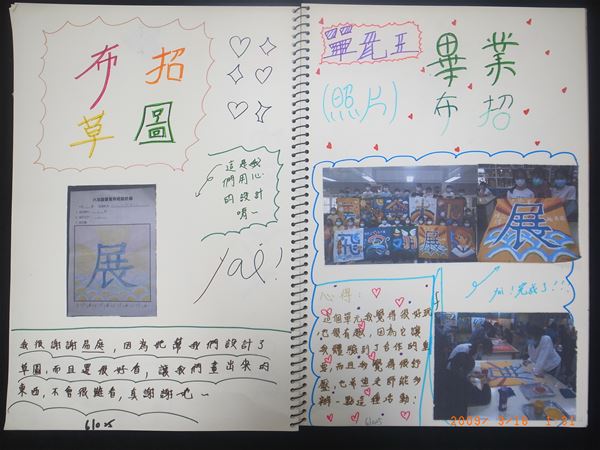 布招
草圖
這是我
們用心
的設計
喔~
Ya!
展
我很謝謝品庭,因為他幫我們設計了
草圖,而且還很好看,讓我們畫出來的
東西,不會很難看,真謝謝她~
61005
單元五
畢業
布招
(照片)
飛
展
展
ya!完成了!!
心得:
這個單元我覺得很好玩
也很有趣,因為它讓
我體驗到了合作的重
要,而且我覺得很舒
壓,也希望老師能多
辦一點這種活動!
61005